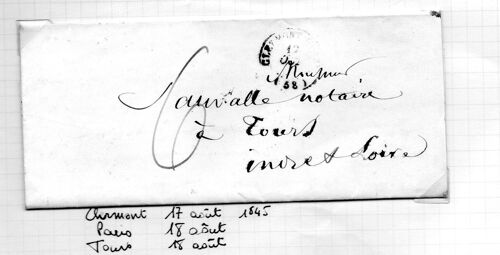 CLERMONT
17
(58)
Monsieur
6
Sauvalle notaire
à Tours
indre et Loire
Clermont 17 août 1845
Paris 18 août
Tours 18 août